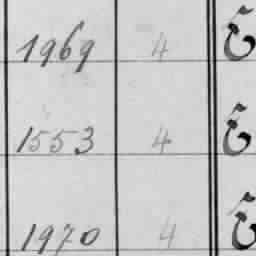 1969 4
1553 4
1970 4